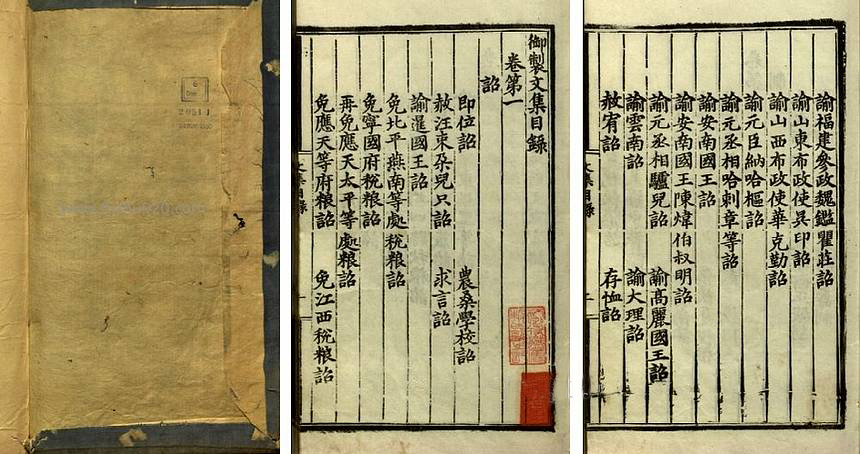 御製文集目錄
卷第一
詔
即位詔 農桑學校詔
赦汪東朶兒只詔 求言詔
諭暹國王詔
免北平燕南等處稅粮詔
免寧國府稅粮詔
再免應天太平等處粮詔
免應天等府粮詔 免江西稅粮詔
文集目錄
諭福建參政魏鑑瞿莊詔
諭山東布政使吳印詔
諭山西布政使華克勤詔
諭元臣納哈樞詔
諭元丞相哈剌章等詔
諭安南國王詔
諭安南國王陳煒伯叔明詔
諭元丞相驢兒詔 諭高麗國王詔
諭雲南詔 諭大理詔
赦宥詔 存恤詔
文集目錄